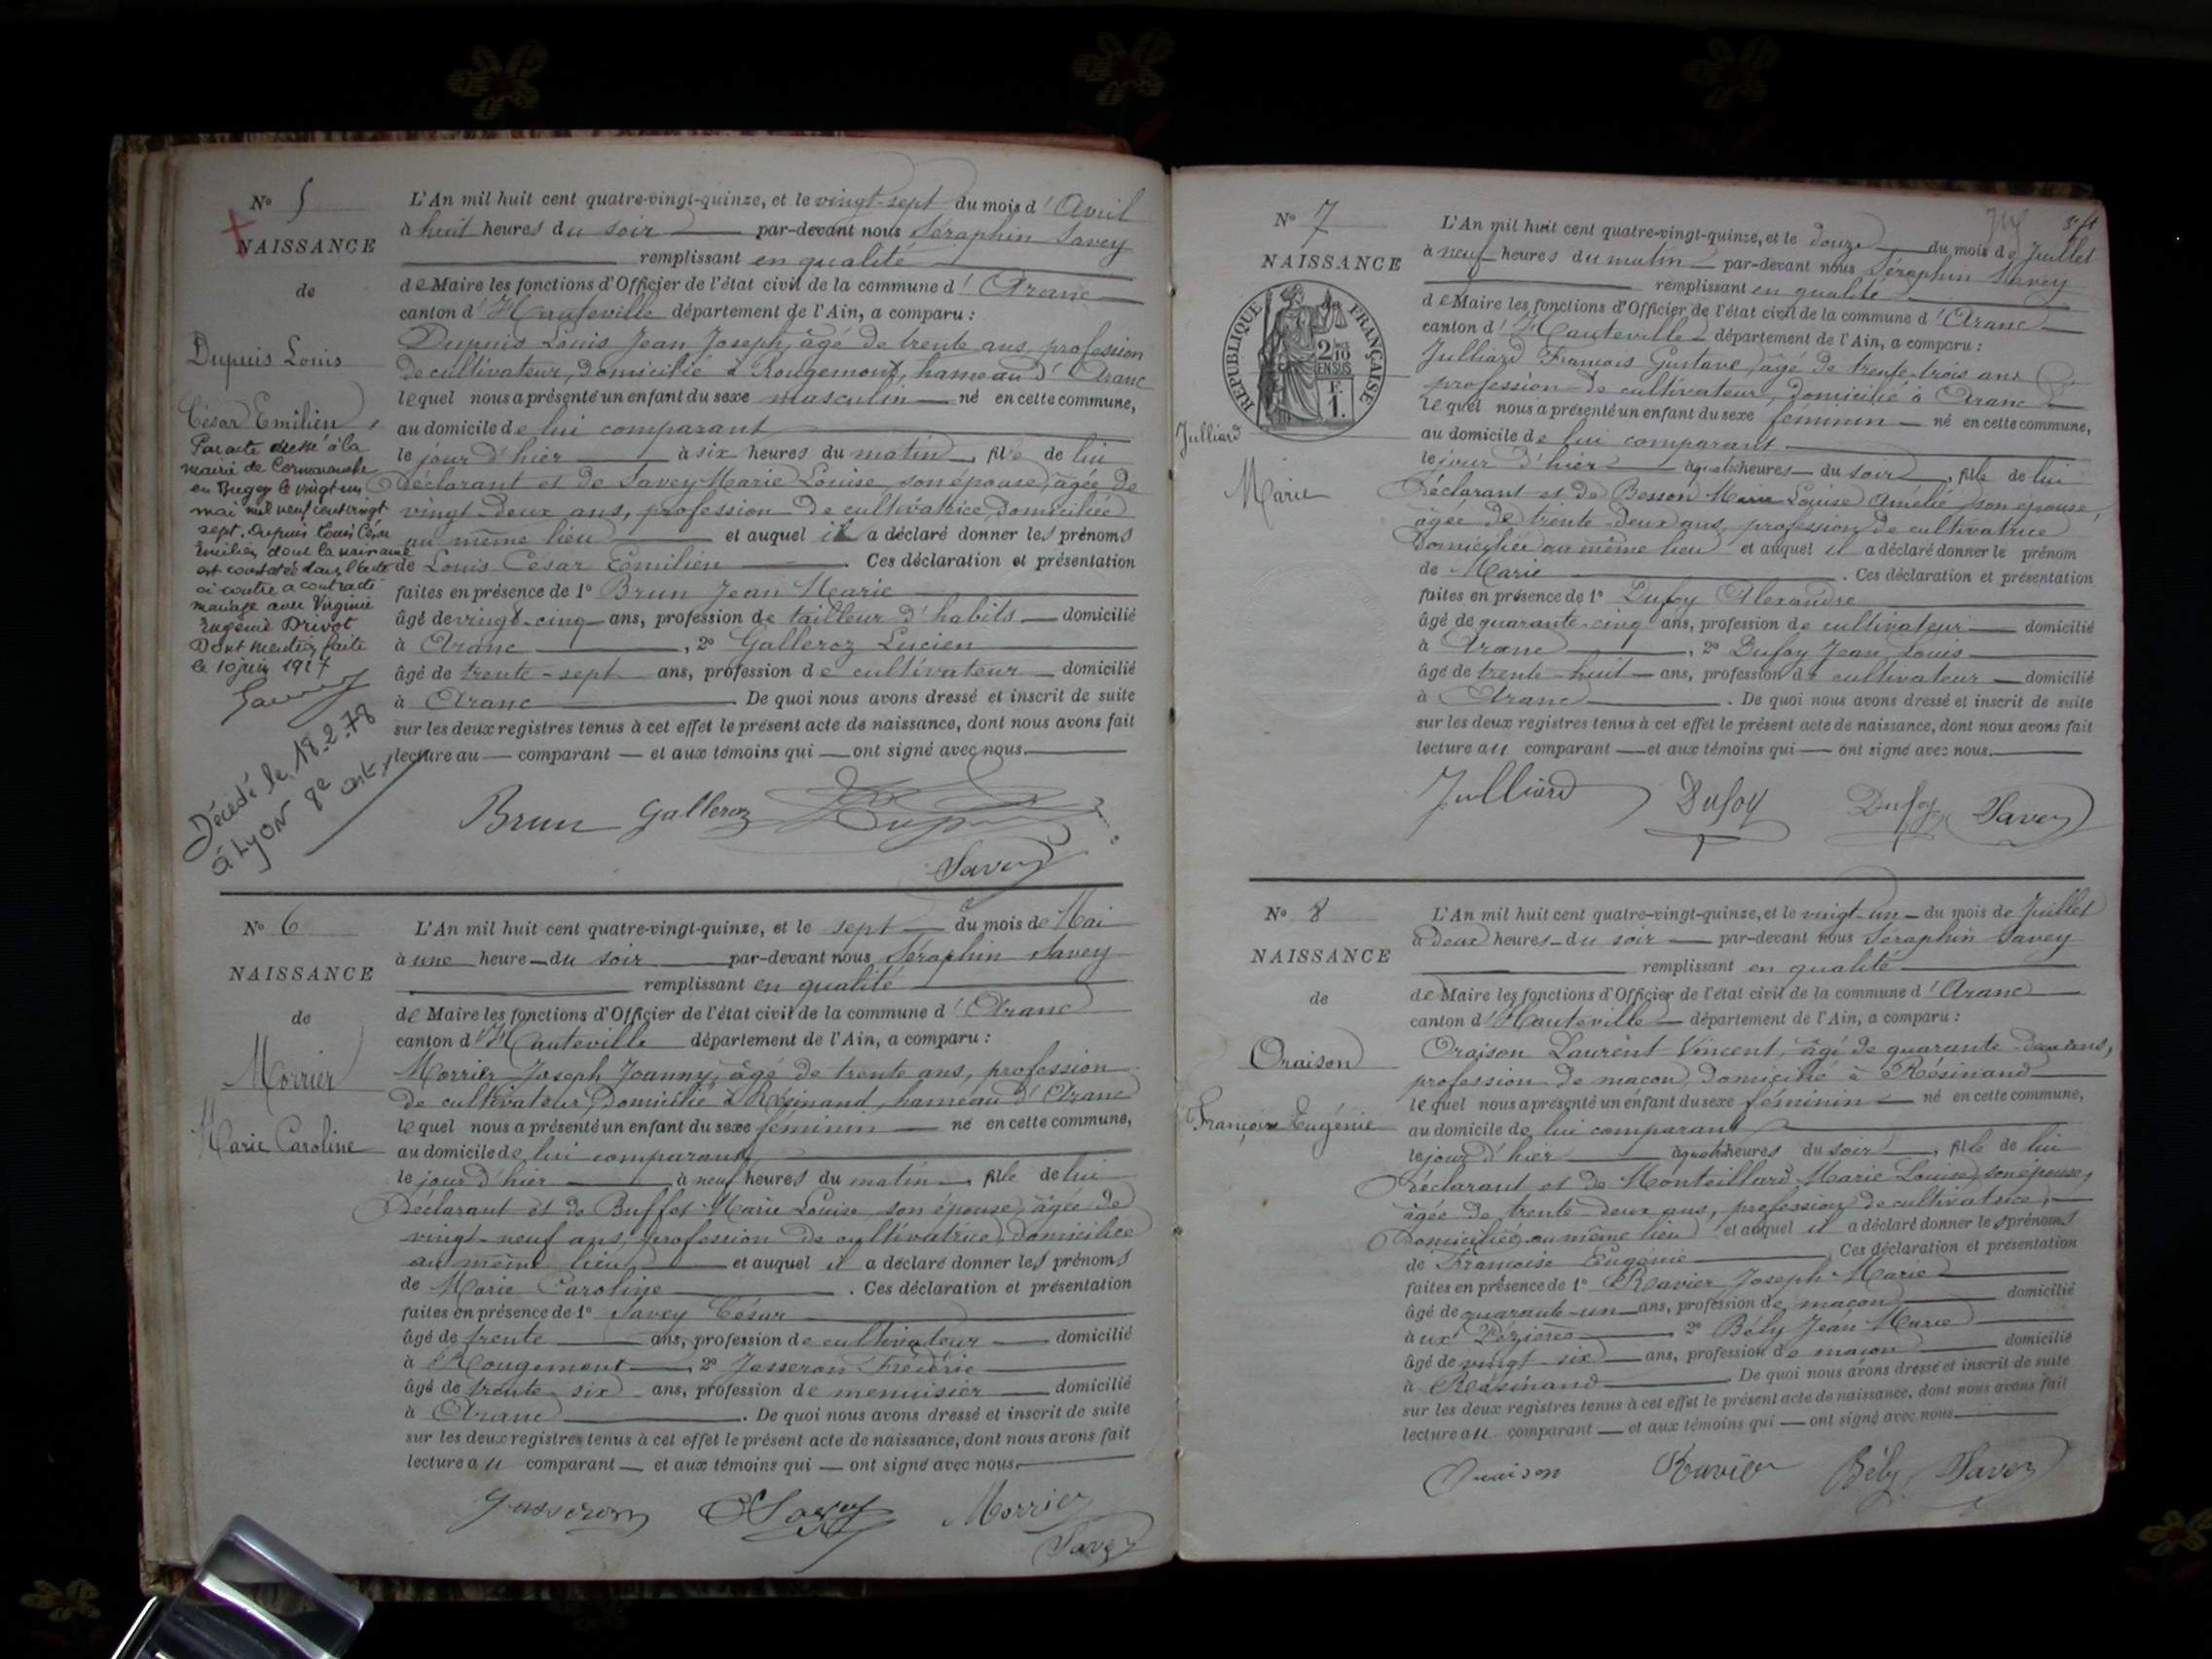 N° 5
NAISSANCE
de
Dupuis Louis
César Emilien
Par acte dressé à la
mairie de
en Bugey le vingt un
mai mil neuf cent vingt
sept. Dupuis Louis César
Emilien dont la naissance
est constatée dans l'acte
ci contre a contracté
mariage avec Virginie
Eugénie Drivot
Dont mention faite
le 10 juin 1927
Savey
Décédé le 18.2.78
à Lyon 8e
L'An mil huit cent quatre-vingt-quinze, et le vingt-sept du mois d'Avril
à huit heures du soir par-devant nous Séraphin Savey
remplissant en qualité
de Maire les fonctions d'Officier de l'état civil de la commune d'Aranc
canton d'Hauteville département de l'Ain, a comparu :
Dupuis Louis Jean Joseph, âgé de trente ans, profession
de cultivateur, domicilié à Rougemont, hameau d'Aranc
lequel nous a présenté un enfant du sexe masculin né en cette commune,
au domicile de lui comparant
le jour d'hier à six heures du matin, fils de lui
déclarant et de Savey Marie Louise, son épouse, âgée de
vingt-deux ans, profession de cultivatrice, domiciliée
au même lieu et auquel il a déclaré donner les prénoms
de Louis César Emilien. Ces déclaration et présentation
faites en présence de 1° Brun Jean Marie
âgé de vingt-cinq ans, profession de tailleur d'habits domicilié
à Aranc, 2° Galleroz Lucien
âgé de trente-sept ans, profession de cultivateur domicilié
à Aranc. De quoi nous avons dressé et inscrit de suite
sur les deux registres tenus à cet effet le présent acte de naissance, dont nous avons fait
lecture au comparant et aux témoins qui ont signé avec nous.
Brun Galleroz Dupuis
Savey
N° 6
NAISSANCE
de
Morrier
Marie Caroline
L'An mil huit cent quatre-vingt-quinze, et le sept du mois de Mai
à une heure du soir par-devant nous Séraphin Savey
remplissant en qualité
de Maire les fonctions d'Officier de l'état civil de la commune d'Aranc
canton d'Hauteville département de l'Ain, a comparu :
Morrier Joseph Joanny, âgé de trente ans, profession
de cultivateur, domicilié à Résinand, hameau d'Aranc
lequel nous a présenté un enfant du sexe féminin né en cette commune,
au domicile de lui comparant
le jour d'hier à neuf heures du matin, fille de lui
déclarant et de Buffet Marie Louise, son épouse, âgée de
vingt-neuf ans, profession de cultivatrice, domiciliée
au même lieu et auquel il a déclaré donner les prénoms
de Marie Caroline. Ces déclaration et présentation
faites en présence de 1° Savey César
âgé de trente ans, profession de cultivateur domicilié
à Rougemont, 2° Jasseron Frédéric
âgé de trente six ans, profession de menuisier domicilié
à Aranc. De quoi nous avons dressé et inscrit de suite
sur les deux registres tenus à cet effet le présent acte de naissance, dont nous avons fait
lecture au comparant et aux témoins qui ont signé avec nous.
Jasseron C Savey Morrier
Savey
N° 7
NAISSANCE
RÉPUBLIQUE FRANÇAISE
2/10
EN SUS
F.
1.
Julliard
Marie
L'An mil huit cent quatre-vingt-quinze, et le douze du mois de Juillet
à neuf heures du matin par-devant nous Séraphin Savey
remplissant en qualité
de Maire les fonctions d'Officier de l'état civil de la commune d'Aranc
canton d'Hauteville département de l'Ain, a comparu :
Julliard François Gustave, âgé de trente-trois ans
profession de cultivateur, domicilié à Aranc
lequel nous a présenté un enfant du sexe féminin né en cette commune,
au domicile de lui comparant
le jour d'hier à quatre heures du soir, fille de lui
déclarant et de Besson Marie Louise Amélie, son épouse,
âgée de trente-deux ans, profession de cultivatrice
domiciliée au même lieu et auquel il a déclaré donner le prénom
de Marie. Ces déclaration et présentation
faites en présence de 1° Dufoy Alexandre
âgé de quarante-cinq ans, profession de cultivateur domicilié
à Aranc, 2° Dufoy Jean Louis
âgé de trente-huit ans, profession de cultivateur domicilié
à Aranc. De quoi nous avons dressé et inscrit de suite
sur les deux registres tenus à cet effet le présent acte de naissance, dont nous avons fait
lecture au comparant et aux témoins qui ont signé avec nous.
Julliard Dufoy Dufoy Savey
N° 8
NAISSANCE
de
Oraison
Françoise Eugénie
L'An mil huit cent quatre-vingt-quinze, et le vingt-un du mois de Juillet
à deux heures du soir par-devant nous Séraphin Savey
remplissant en qualité
de Maire les fonctions d'Officier de l'état civil de la commune d'Aranc
canton d'Hauteville département de l'Ain, a comparu :
Oraison Laurent Vincent, âgé de quarante-deux ans,
profession de maçon, domicilié à Résinand
lequel nous a présenté un enfant du sexe féminin né en cette commune,
au domicile de lui comparant
le jour d'hier à quatre heures du soir, fille de lui
déclarant et de Monteillard Marie Louise, son épouse,
âgée de trente deux ans, profession de cultivatrice,
domiciliée au même lieu et auquel il a déclaré donner les prénoms
de Françoise Eugénie. Ces déclaration et présentation
faites en présence de 1° Ravier Joseph Marie
âgé de quarante-un ans, profession de maçon domicilié
aux Pézières, 2° Bély Jean Marie
âgé de vingt-six ans, profession de maçon domicilié
à Résinand. De quoi nous avons dressé et inscrit de suite
sur les deux registres tenus à cet effet le présent acte de naissance, dont nous avons fait
lecture au comparant et aux témoins qui ont signé avec nous.
Oraison Ravier Bély Savey